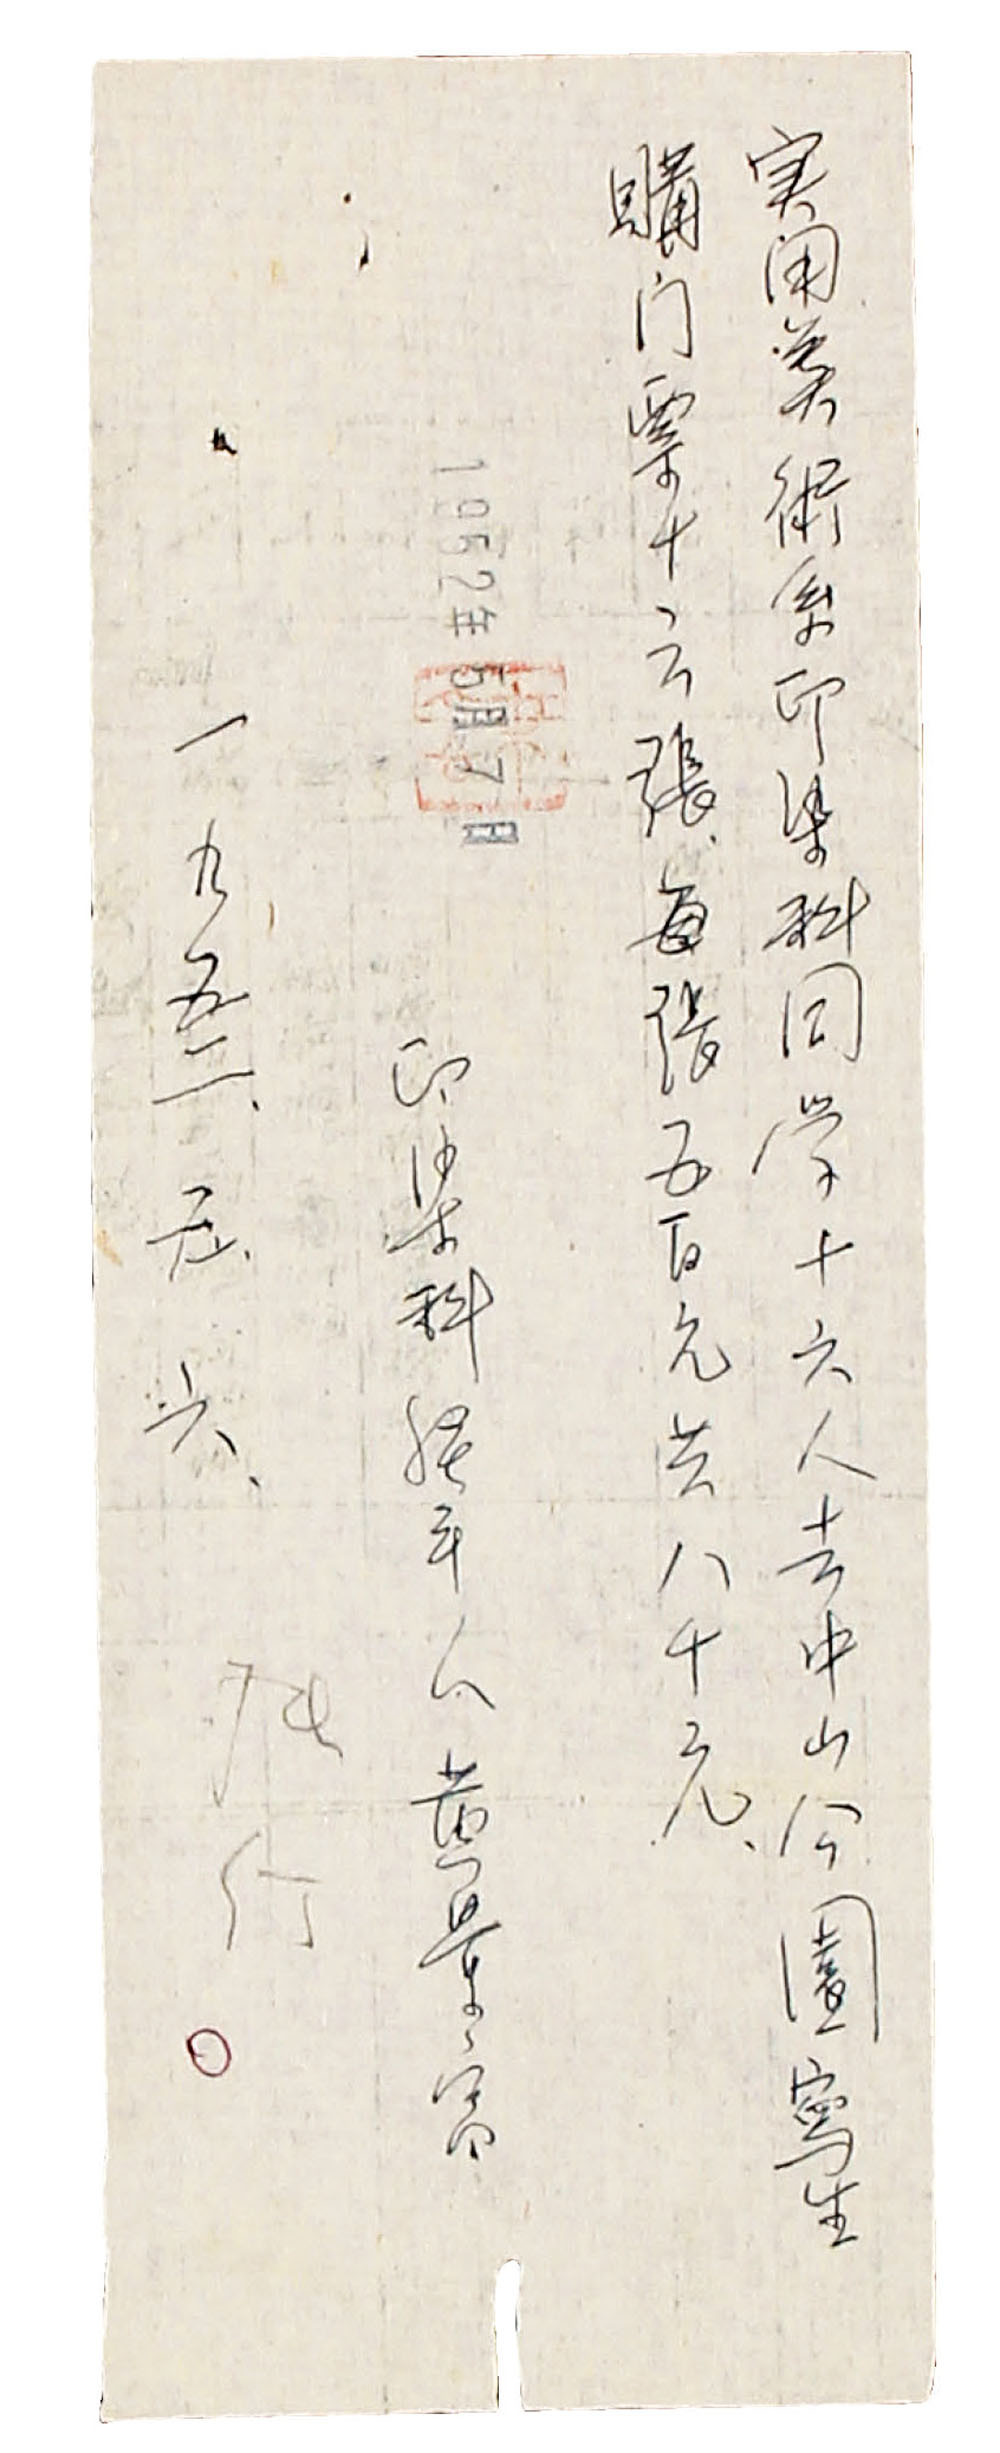 实用美術系印染科同学十六人去中山公園寫生
購门票十六張、每張五百元共八千元、
1952年5月7日
印染科經手人 黄
一九五二、五、六、